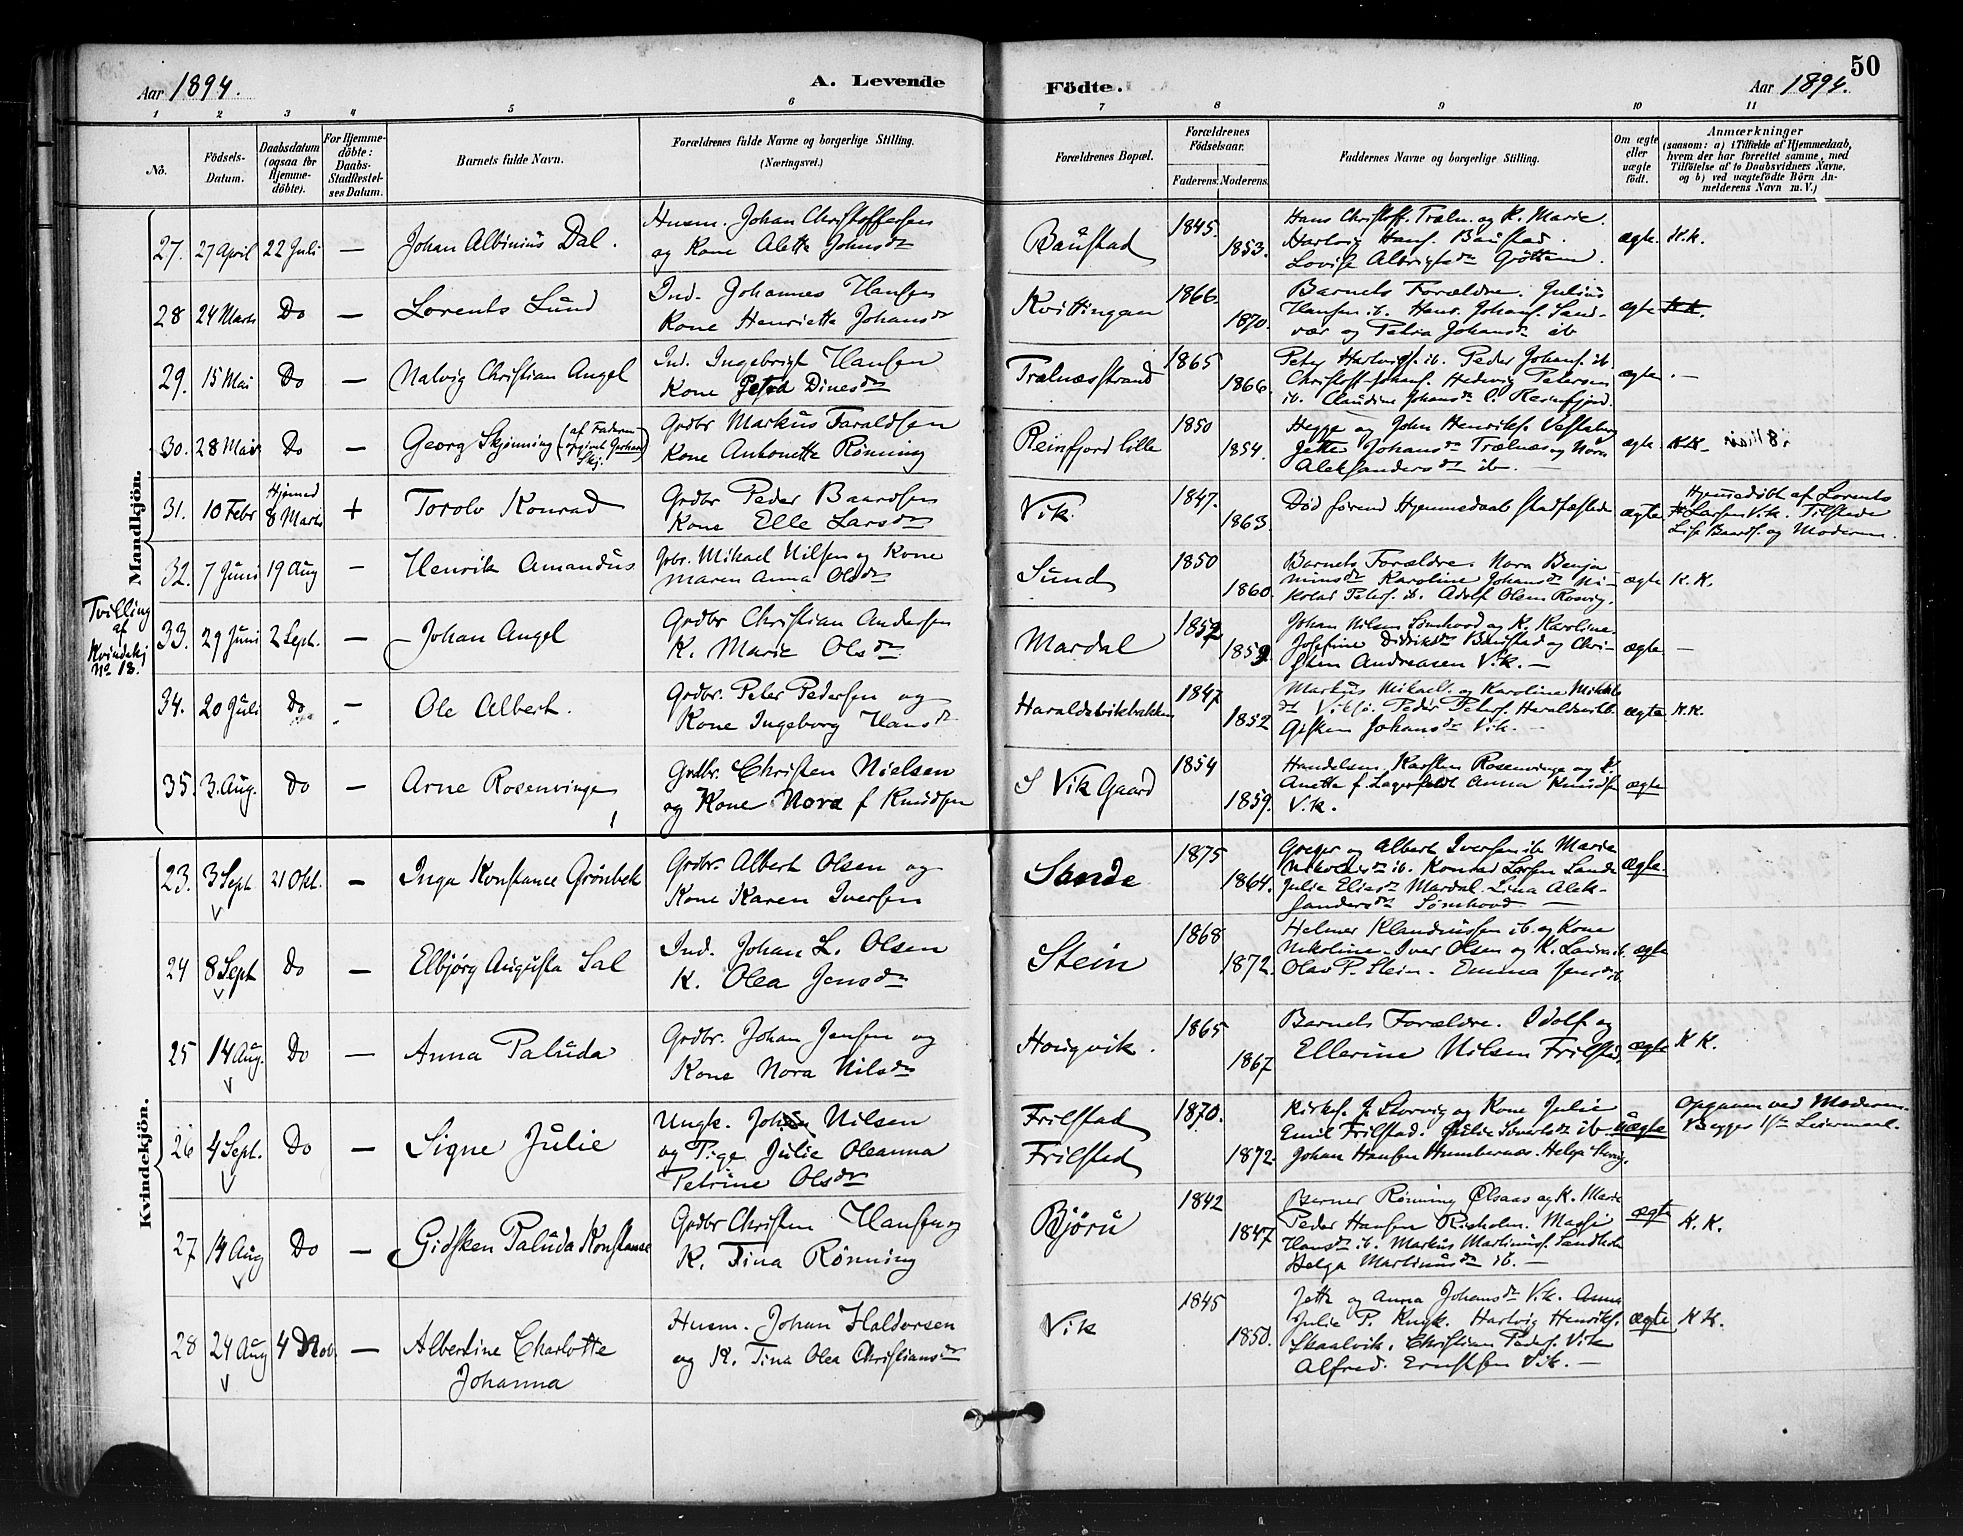 50
Aar 1894. A. Levende Födte. Aar 1894.
1 2 3 4 5 6 7 8 9 10 11
No. Födsels-Datum. Daabsdatum (ogsaa för Hjemme-döbte). For Hjemme-döbte: Daabs-Stadfæstel-ses Datum. Barnets fulde Navn. Forældrenes fulde Navne og borgerlige Stilling. (Næringsvei.) Forældrenes Bopæl. Forældrenes Födselsaar. Faderens. Moderens. Faddernes Navne og borgerlige Stilling. Om ægte eller uægte født. Anmærkninger (saasom: a) i Tilfælde af Hjemmedaab, hvem der har forrettet samme, med Tilföielse af to Daabsvidners Navne, og b) ved uægtefödte Börn An-melderens Navn m. V.)
Mandkjön.
27. 27 April 22 Juli — Johan Albinius Dal. Husm. Johan Christoffersen og Kone Alette Johnsdr Baustad 1845. 1853. Hans Christoff. Træln. og K. Marie. Hartvig Hans. Baustad. Lovise Albrigtsdr ægte. K.K.
28 24 Marts Do — Lorents Lund Ind. Johannes Hansen Kone Henriette Johansdr Kvittingen 1866. 1870. Barnets Forældre. Julius Hansen ib. Hans Johans. Sand-vær og Petra Johansdr ib ægte K.K.
29. 15 Mai Do — Nalvig Christian Angel Ind. Ingebrigt Hansen Kone Petra Dinesdr Trælnæsstrand 1865 1866. Peter Hartvigs. ib. Peder Johans. ib. Christoff Johans. Hedevig Petersen ib. Claudine Johansdr Reinfjord. ægte. —
30. 28 Mai Do — Georg Skjønning (af Faderen opgivet Gerhard Skj.) Grdbr Markus Faraldsen Kone Antonette Rönning Reinfjord lille 1850 1854. Heppe og John Henriks. Jette Johansdr Trælnæs og Nora Aleksandersdr ib. — ægte K.K.
31. 10 Febr Hjemmed 8 Marts + Torolv Konrad Grdbr Peder Baardsen Kone Elle Larsdr Vik. 1847. 1863. Død förend Hjemmedaab stadfæstede ægte Hjemmedöbt af Lorents Larsen Vik. Tilstede Lise Baards. og Moderen.
32. 7 Juni 19 Aug — Henrik Amandus Grbr. Mikael Nilsen og Kone Maren Anna Olsdr Sund 1850 1860 Barnets Forældre. Nora Benja-minsdr Karoline Johansdr Ni-kolai Peters. ib. Adolf Olsen Rosvig. ægte K.K.
Tvilling af Kvindekj No 18.
33. 29 Juni 2 Sept. — Johan Angel Grdbr Christian Andersen K. Marie Olsdr Mardal 1852 1859 Johan Nilsen Sömhovd og K. Karoline. Josefine Didriksdr Baustad og Chri-sten Andreasen Vik. — ægte —
34. 20 Juli Do — Ole Albert. Grdbr. Peter Pedersen og Kone Ingeborg Hansdr Haraldsvikbakken 1847 1852 Markus Mikael. og Karoline Mikkels dr Viksö. Peder Peters. Haraldsvikb. Gisken Johansdr Vik. — ægte K.K.
35 3 Aug. Do — Arne Rosenvinge Grdbr. Christen Nielsen og Kone Nora f Knudsen S Vik Gaard 1854 1859. Handelsm. Karsten Rosenvinge og K. Anette f. Lagerfeldt Anna Knudsen Vik. ægte
Kvindekjön.
23. 3 Sept 21 Okt. — Inga Konstance Grönbek Grdbr. Albert Olsen og Kone Karen Iversen Sande 1875 1864. Greger og Albert Iversen ib Marie Nikolaisdr ib. Konrad Larsen Sande Julie Eliasdr Mardal. Lina Alek-sandersdr Sömhovd — ægte.
24 8 Sept Do — Elbjörg Augusta Sal Ind. Johan L. Olsen K. Olea Jensdr Stein 1868 1872. Helmer Klaudiussen ib. og Kone Nikoline. Iver Olsen og K. Laura ib. Olav P. Stein. Emma Jensdr ib. ægte
25 14 Aug. Do — Anna Paluda Grdbr. Johan Jensen og Kone Nora Nilsdr Hougvik. 1865 1867 Barnets Forældre. Adolf og Ellerine Nilsen Frilstad. ægte K K.
26 4 Sept. Do — Signe Julie Ungk. Johan Nilsen og Pige Julie Oleanna Petrine Olsdr Frilstad Frilstad 1870. 1872. Kirkes. J. Storvig og Kone Julie Emil Frilstad. Julie Sivertsdr ib Johan Hansen Humbernæs. Helga Storvig. uægte Opgaven ved Moderen. Begges 1ste Leiermaal.
27 14 Aug Do — Gidsken Paluda Konstanse Grdbr Christen Hansen og K. Tina Rönning Björu 1842 1847 Berner Rönning Ölsaas og K. Marie Peder Hansen Risholm. Massi Hansdr ib. Markus Martinus. Sandholm Helga Martinusdr ib. — ægte K.K.
28 24 Aug 4 Nov. — Albertine Charlotte Johanna Husm. Johan Haldorsen og K. Tina Olea Christiansdr Vik 1845 1850. Jette og Anna Johansdr Vik. Anna Julie P. Kugk. Hartvig Henriks. Skaalvik. Christian Peders. Vik Alfred. Ernstsen Vik. — ægte K K.